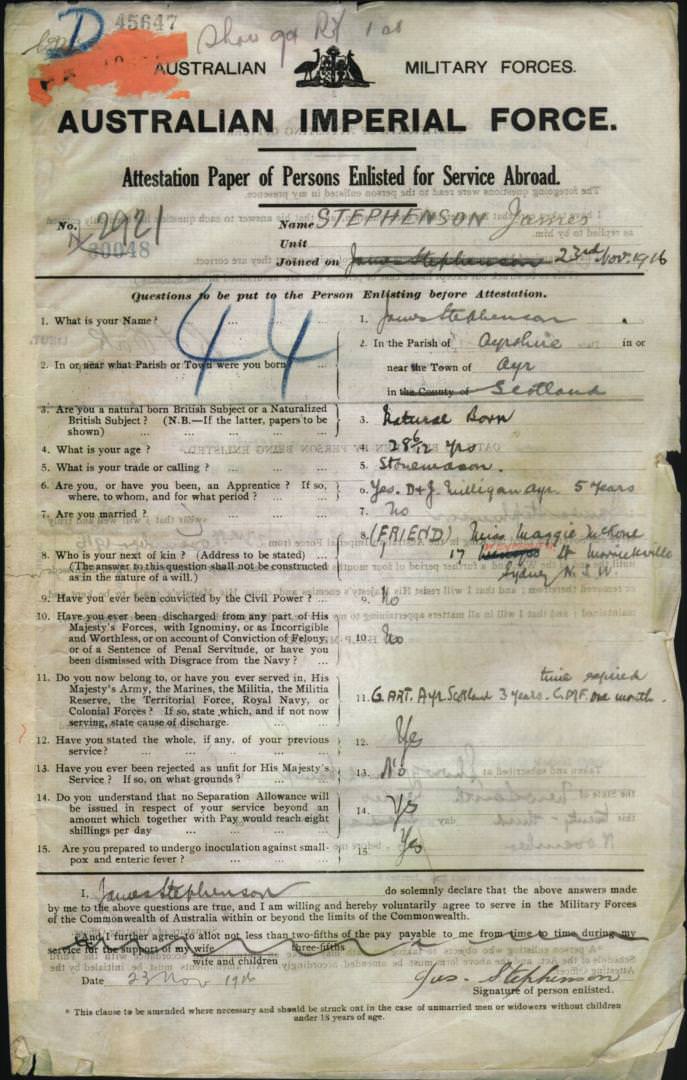 D 45647
AUSTRALIAN MILITARY FORCES.
AUSTRALIAN IMPERIAL FORCE.
Attestation Paper of Persons Enlisted for Service Abroad.
No. 2921 Name STEPHENSON James
30048 Unit
Joined on James Stephenson 23rd Nov. 1916
Questions to be put to the Person Enlisting before Attestation.
44
1. What is your Name? ... ... ... 1. James Stephenson
2. In or near what Parish or Town were you born ... 2. In the Parish of Ayrshire in or
near the Town of Ayr
in the County of Scotland
3. Are you a natural born British Subject or a Naturalized
British Subject? (N.B.—If the latter, papers to be
shown) ... ... ... 3. Natural Born
4. What is your age? ... ... ... 4. 28 6/12 yrs
5. What is your trade or calling? ... ... 5. Stonemason.
6. Are you, or have you been, an Apprentice? If so,
where, to whom, and for what period? ... ... 6. Yes. D & J. Milligan Ayr. 5 Years
7. Are you married? ... ... ... 7. No
8. Who is your next of kin? (Address to be stated) ...
(The answer to this question shall not be constructed
as in the nature of a will.) 8. (FRIEND) Miss Maggie McKone
17 St Marrickville
Sydney N.S.W.
9. Have you ever been convicted by the Civil Power? ... 9. No
10. Have you ever been discharged from any part of His
Majesty's Forces, with Ignominy, or as Incorrigible
and Worthless, or on account of Conviction of Felony,
or of a Sentence of Penal Servitude, or have you
been Dismissed with Disgrace from the Navy? ... 10. No
11. Do you now belong to, or have you ever served in, His
Majesty's Army, the Marines, the Militia, the Militia
Reserve, the Territorial Force, Royal Navy, or
Colonial Forces? If so, state which, and if not now
serving, state cause of discharge. time expired
11. G ART. Ayr Scotland 3 years. C.M.F. one month.
12. Have you stated the whole, if any, of your previous
service? ... ... ... 12. Yes
13. Have you ever been rejected as unfit for His Majesty's
Service? If so, on what grounds? ... ... 13. No
14. Do you understand that no Separation Allowance will
be issued in respect of your service beyond an
amount which together with Pay would reach eight
shillings per day ... ... ... 14. Yes
15. Are you prepared to undergo inoculation against small-
pox and enteric fever? ... ... ... 15. Yes
I, James Stephenson do solemnly declare that the above answers made
by me to the above questions are true, and I am willing and hereby voluntarily agree to serve in the Military Forces
of the Commonwealth of Australia within or beyond the limits of the Commonwealth.
*And I further agree to allot not less than two-fifths of the pay payable to me from time to time during my
service for the support of my wife three-fifths
wife and children
Date 23 Nov 1916 Jas. Stephenson
Signature of person enlisted.
* This clause to be amended where necessary and should be struck out in the case of unmarried men or widowers without children
under 18 years of age.